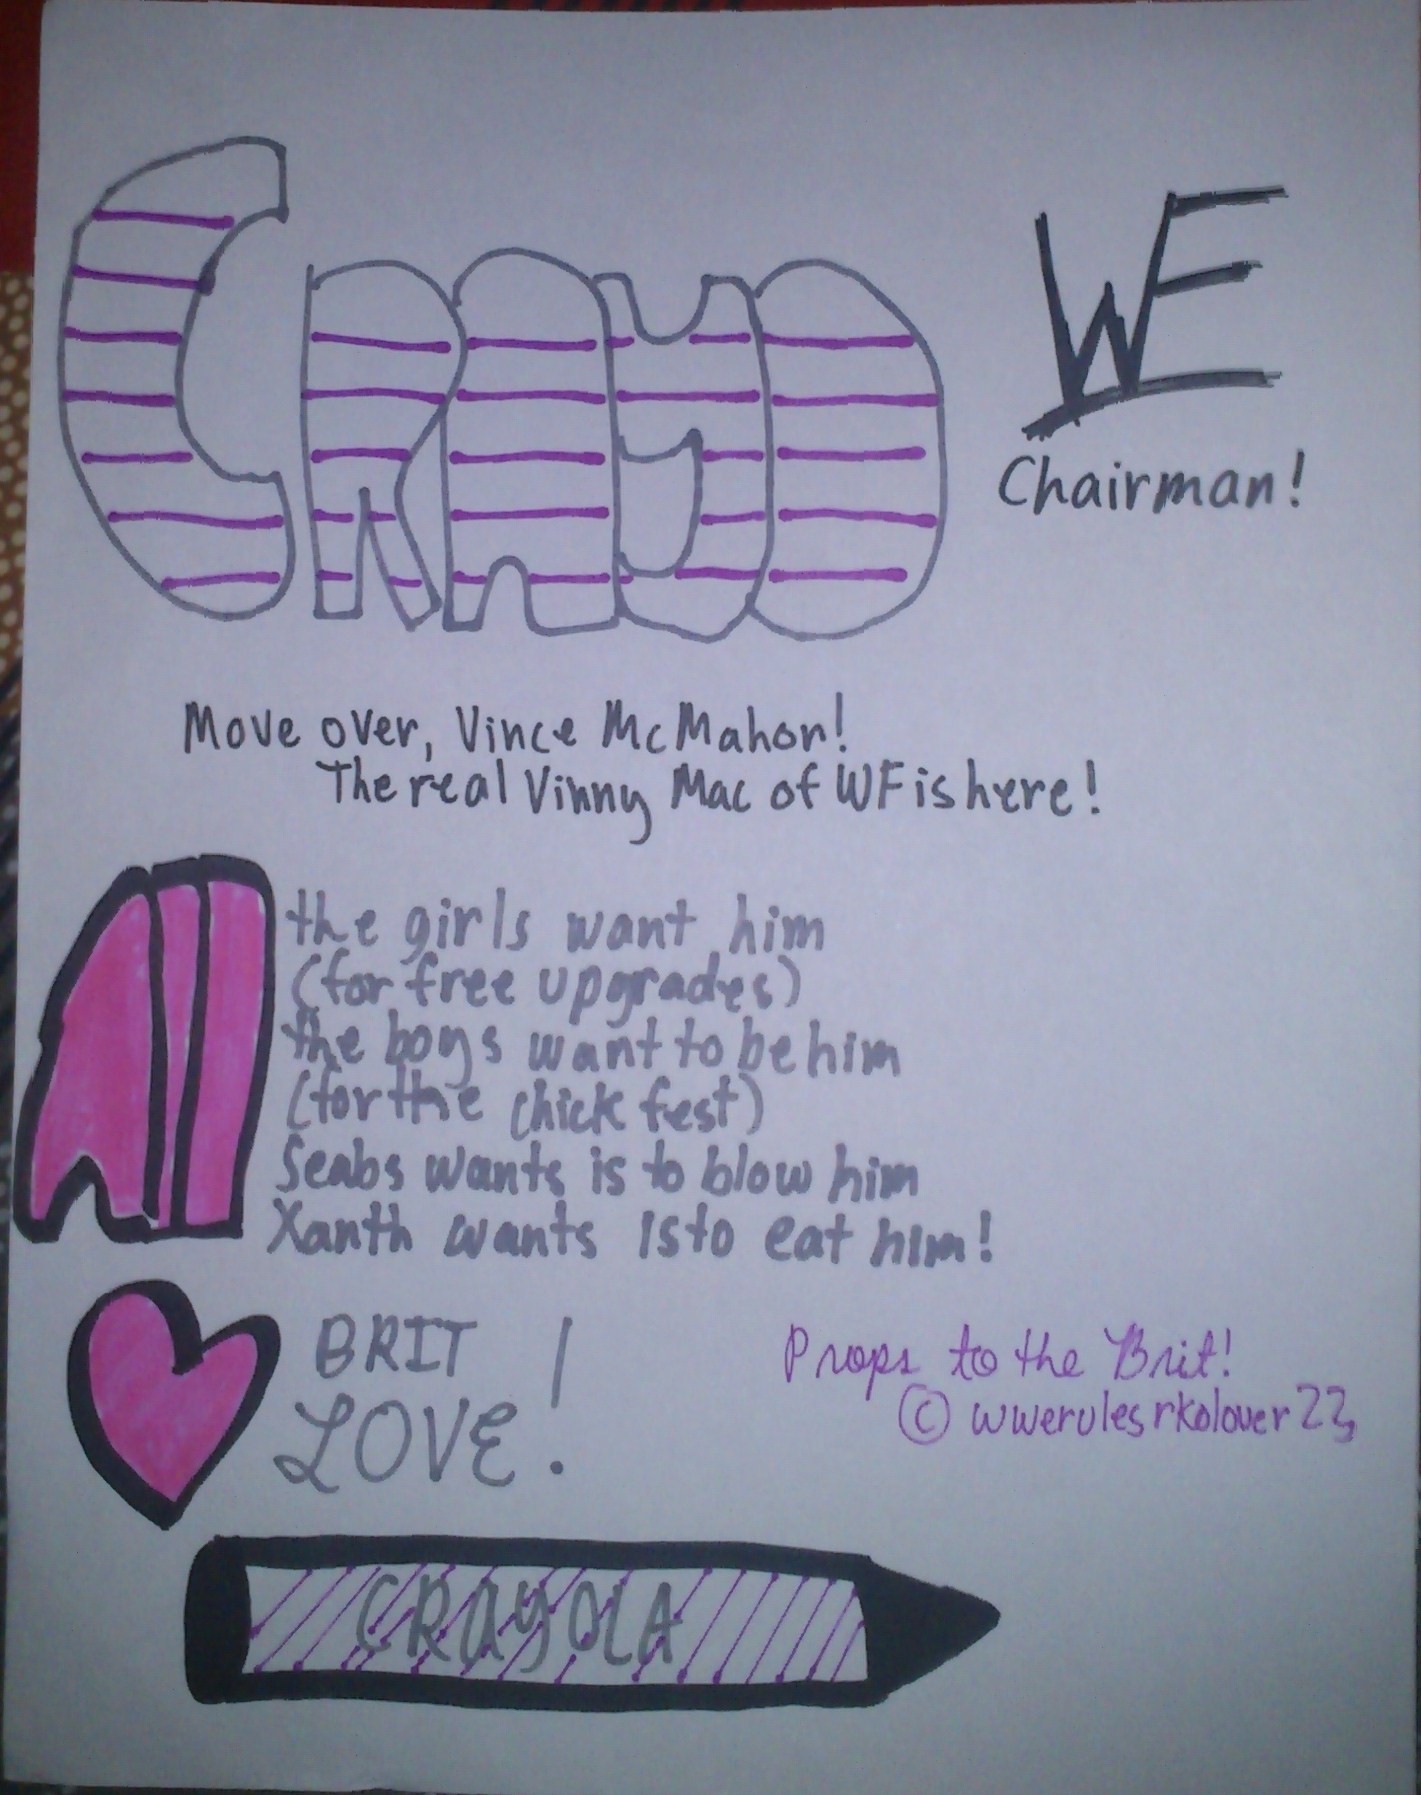 CRAYO
WF
Chairman!
Move over, Vince McMahon!
The real Vinny Mac of WF is here!
All
the girls want him
(for free upgrades)
the boys want to be him
(for the chick fest)
Seabs wants is to blow him
Xanth wants is to eat him!
BRIT
LOVE!
Props to the Brit!
© wwerulesrkolover23
CRAYOLA